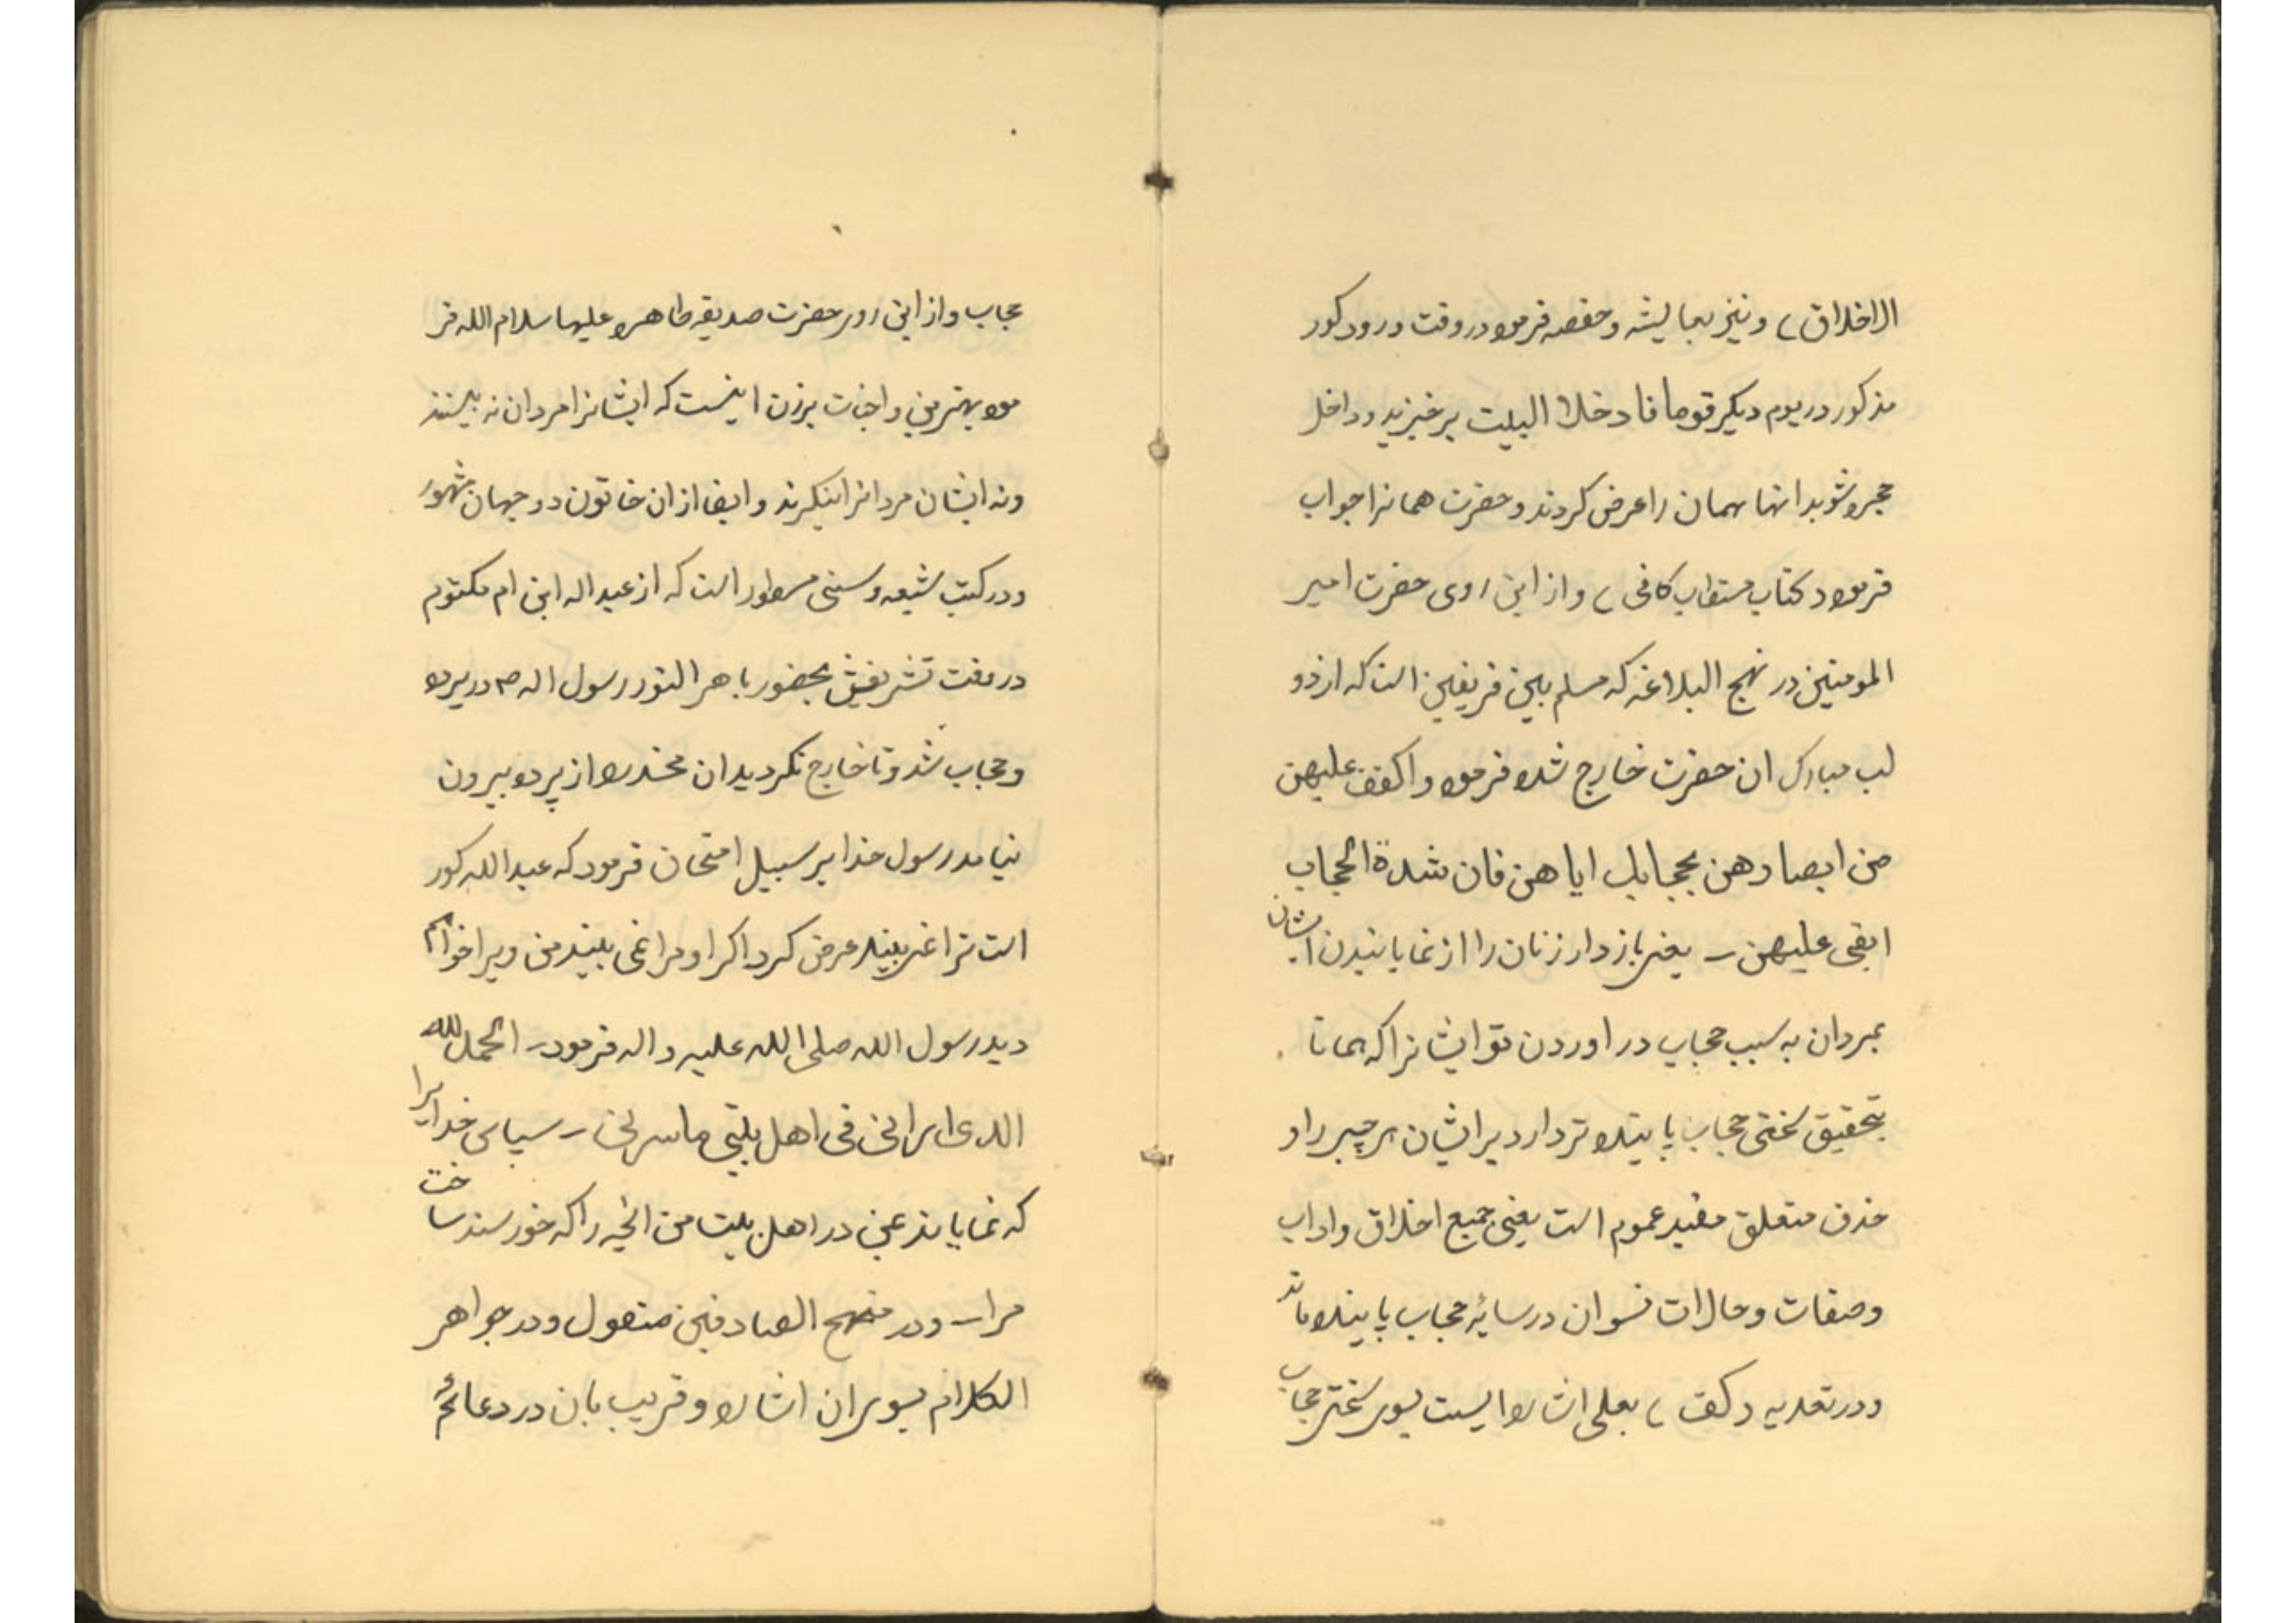 الاخلاق) و نیز بعایشه و حفصه فرموده در وقت ورود کور
مذکور در یوم دیگر قوما فادخلا البیت برخیزید و داخل
حجره شوید انها همان را عرض کردند و حضرت همانرا جواب
فرموده کتاب مستطاب کافی) و از این روی حضرت امیر
المومنین در نهج البلاغه که مسلم بین فریقین است که از دو
لب مبارک ان حضرت خارج شده فرموده و اکفف علیهن
من ابصارهن بحجابک ایاهن فان شدة الحجاب
ابقی علیهن – یعنی بازدار زنان را از نمایانیدن ایشان
بمردان به سبب حجاب در اوردن تو ایشانرا که همانا
بتحقیق سختی حجاب پاینده تر دارد بر ایشان هر چیز را و
حذف متعلق مفید عموم است یعنی جمیع اخلاق و اداب
وصفات و حالات نسوان در سایۀ حجاب پاینده ماند
و در تعدیه (کفف) بعلی اشاره ایست بسوی سختی حجاب
حجاب و از این روی حضرت صدیقه طاهره علیها سلام الله فر
موده بهترین واجبات بر زن اینست که ایشانرا مردان نه بینند
و نه ایشان مردانرا بنگرند و ایضا از ان خاتون دو جهان مشهور
و در کتب شیعه و سنی مسطور است که از عبد اله ابن ام مکتوم
در وقت تشریفش بحضور باهر النور رسول اله ص در پرده
و حجاب شد و تا خارج نگردید ان مخدره از پرده بیرون
نیامد رسول خدا بر سبیل امتحان فرمود که عبد الله کور
است ترا نمی بیند عرض کرد اگر او مرا نمی بیند من ویرا خواهم
دید رسول الله صلی الله علیه و اله فرمود – الحمد لله
الذی ارانی فی اهل بیتی ما سرنی – سپاس خدایرا
که نمایانید بمن در اهل بیت من انچه را که خورسند ساخت
مرا – و در منهج الصادقین منقول و در جواهر
الکلام بسوی ان اشاره و قریب بان در دعائم